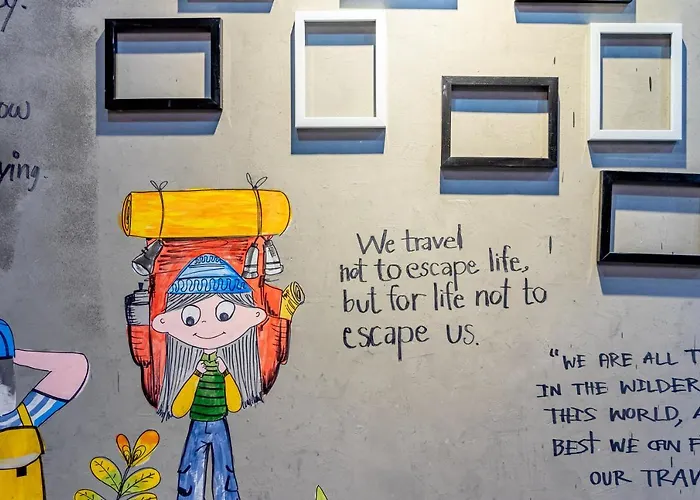 We travel
not to escape life,
but for life not to
escape us.
"WE ARE ALL
IN THE
THIS WORLD,
BEST WE CAN
OUR